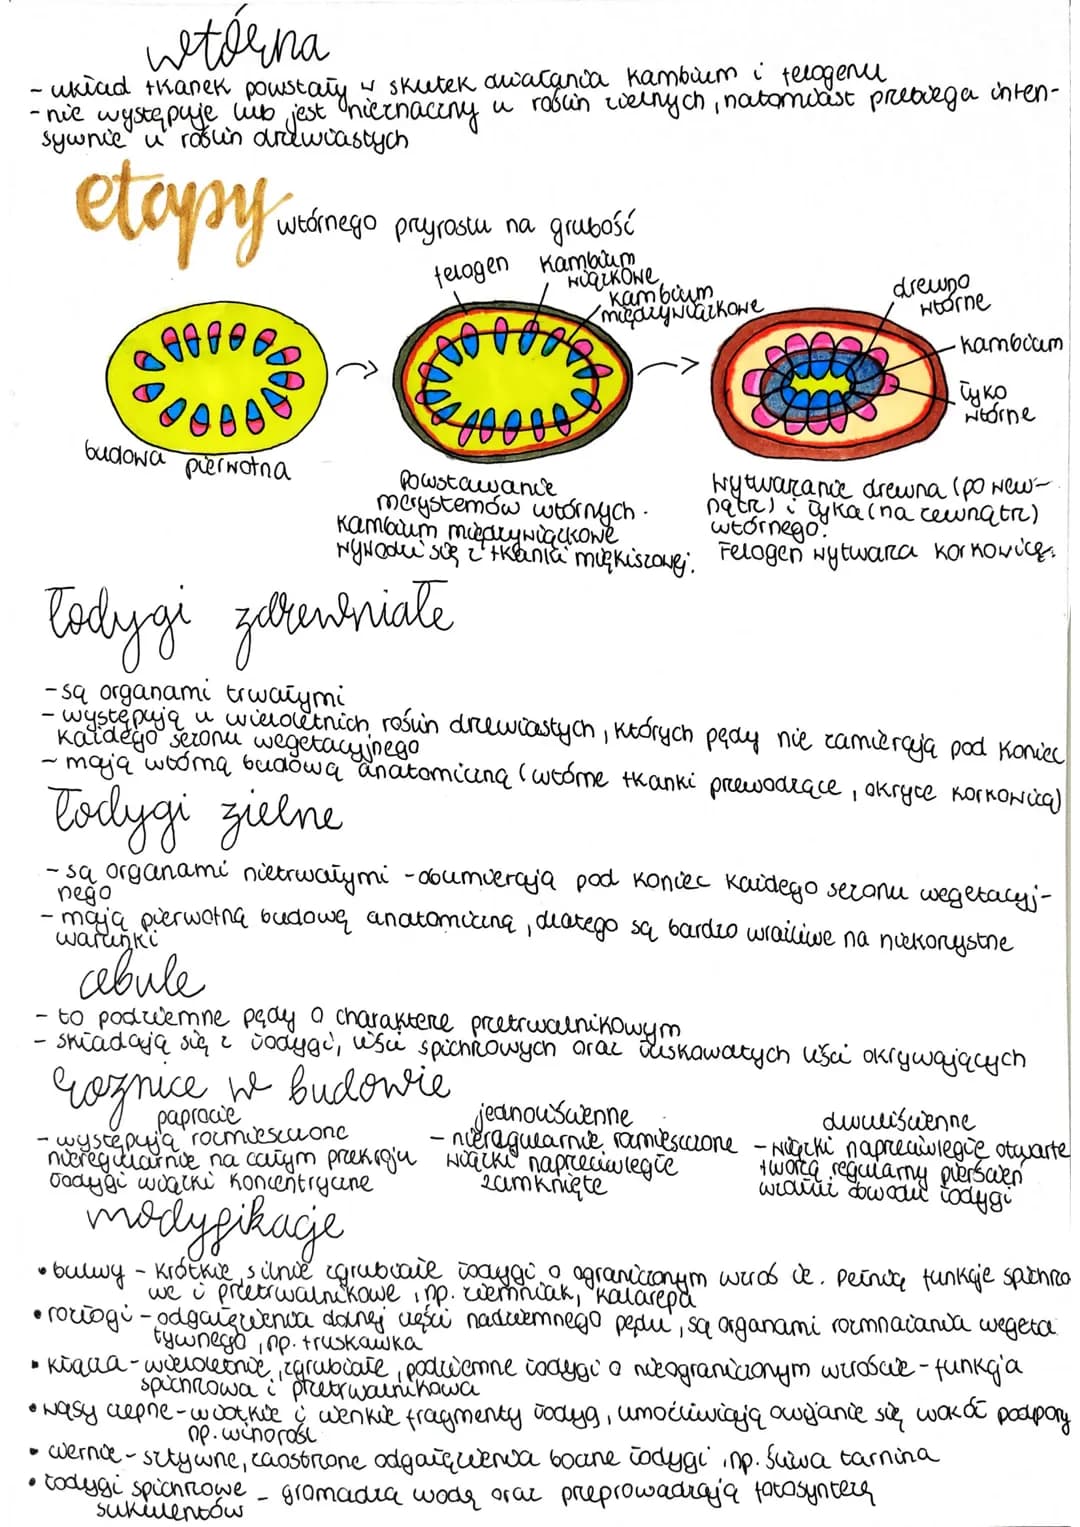 wtórna
- układ tkanek powstały w skutek działania kambium i felogenu
- nie występuje lub jest nieznaczny u roślin zielnych, natomiast przebiega inten-
sywnie u roślin drzewiastych
etapy
wtórnego przyrostu na grubość
felogen
kambium
wiązkowe
kambium
międzywiązkowe
drewno
wtórne
kambium
łyko
wtórne
budowa pierwotna
Powstawanie
merystemów wtórnych.
Kambium międzywiązkowe
wywodzi się z tkanki miękiszowej.
Wytwarzanie drewna (po wew-
nątrz) i łyka (na zewnątrz)
wtórnego.
Felogen wytwarza korkowicę.
łodygi zdrewniałe
- są organami trwałymi
- występują u wieloletnich roślin drzewiastych, których pędy nie zamierają pod koniec
każdego sezonu wegetacyjnego
- mają wtórną budową anatomiczną (wtórne tkanki przewodzące, okryte korkowicą)
łodygi zielne
- są organami nietrwałymi - obumierają pod koniec każdego sezonu wegetacyj-
nego
- mają pierwotną budowę anatomiczną, dlatego są bardzo wrażliwe na niekorzystne
warunki
cebule
- to podziemne pędy o charakterze przetrwalnikowym
- składają się z łodygi, liści spichrzowych oraz łuskowatych liści okrywających
różnice w budowie
paprocie
- występują rozmieszczone
nieregularnie na całym przekroju
łodygi wiązki koncentryczne
jednoliścienne
- nieregularnie rozmieszczone
wiązki naprzeciwległe
zamknięte
dwuliścienne
- wiązki naprzeciwległe otwarte
tworzą regularny pierścień
wzdłuż obwodu łodygi
modyfikacje
• bulwy - krótkie, silnie zgrubiałe łodygi o ograniczonym wzroście. Pełnią funkcje spichrzo
we i przetrwalnikowe, np. ziemniak, kalarepa
• rozłogi - odgałęzienia dolnej części nadziemnego pędu, są organami rozmnażania wegeta
tywnego, np. truskawka
• kłącza - wieloletnie, zgrubiałe, podziemne łodygi o nieograniczonym wzroście - funkcja
spichrzowa i przetrwalnikowa
• wąsy czepne - wiotkie i cienkie fragmenty łodyg, umożliwiają owijanie się wokół podpory
np. winorośl
• ciernie - sztywne, zaostrzone odgałęzienia boczne łodygi, np. śliwa tarnina
• łodygi spichrzowe - gromadzą wodę oraz przeprowadzają fotosyntezę
sukulentów